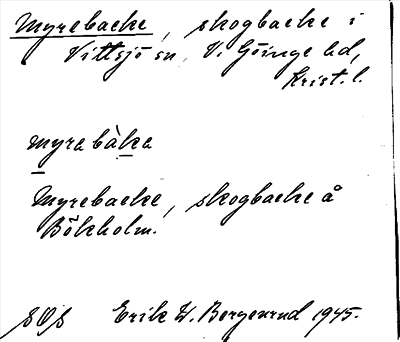 Myrebacke, skogbacke i
Vittsjö sn, V. Göinge hd,
Krist. l.
myra bàka
Myrebacke, skogbacke å
Bökholm.
SOS Erik W. Bergenrud 1945.